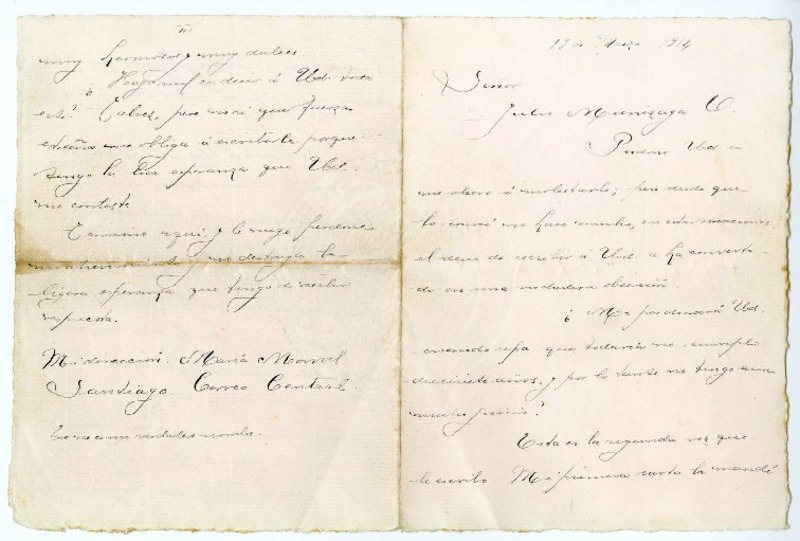 19 de Marzo 1914
Señor
Julio Munizaga O.
Perdone Ud. si
me atrevo á molestarlo; pero desde que
lo conocí no hace mucho, en estas vacaciones,
el deseo de escribir á Ud. se ha converti-
do en una verdadera obsesión
¿Me perdonará Ud.
cuando sepa que todavía no cumplo
diecisiete años, y por lo tanto no tengo aun
mucho juicio?
Esta es la segunda vez que
le escribo. Mi primera carta la mandé
III
muy hermosos y muy dulces.
¿Hago mal en decir á Ud. todo
esto? Talvez, pero no sé que fuerza
extraña me obliga á escribirle porque
tengo la esperanza que Ud.
me conteste
Termino aquí, y le ruego perdone
mi atrevimiento y no destruya la
ligera esperanza que tengo de recibir
respuesta.
Mi dirección: María Monvel
Santiago. Correo Central.
Ese no es mi verdadero nombre.